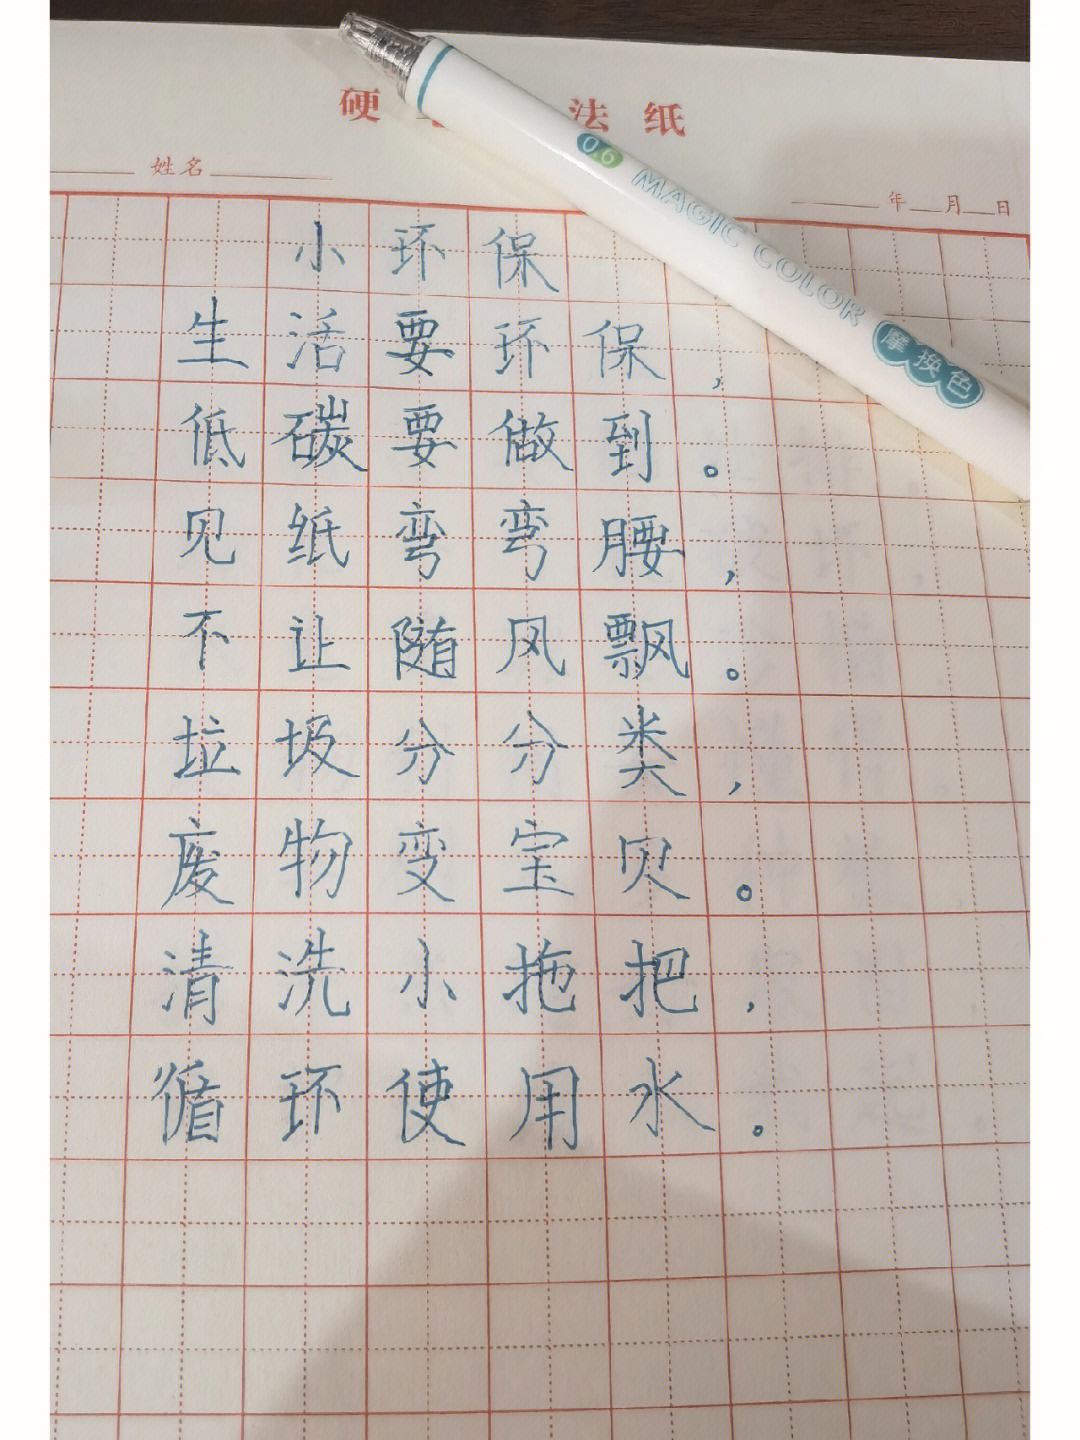 硬 法 纸
姓名 年 月 日
0.6 MAGIC COLOR 摩换色
小环保
生活要环保，
低碳要做到。
见纸弯弯腰，
不让随风飘。
垃圾分分类，
废物变宝贝。
清洗小拖把，
循环使用水。